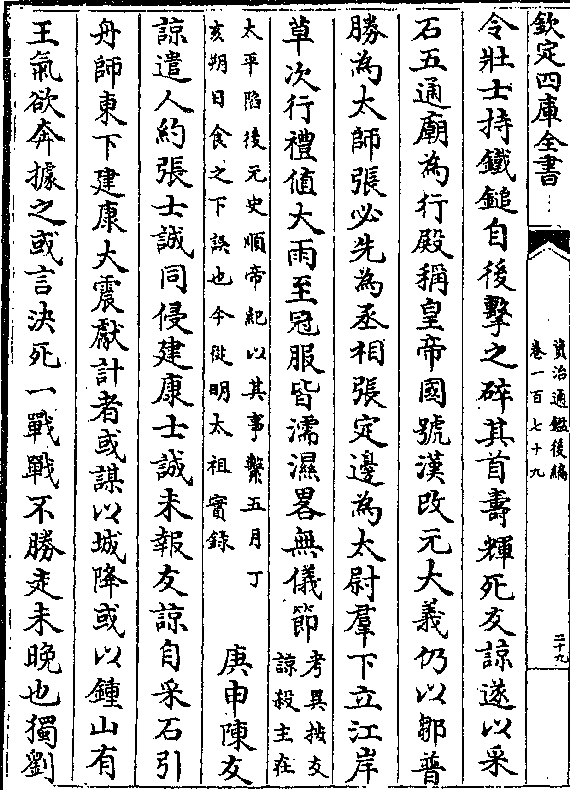 欽定四庫全書
資治通鑑後編
卷一百七十九
二十九
令壯士持鐵鎚自後擊之碎其首壽輝死友諒遂以采
石五通廟為行殿稱皇帝國號漢改元大義仍以鄒普
勝為太師張必先為丞相張定邊為太尉羣下立江岸
草次行禮值大雨至冠服皆濡濕畧無儀節
考異按友
諒殺主在
太平陷後元史順帝紀以其事繫五月丁
亥朔日食之下誤也今從明太祖實錄
庚申陳友
諒遣人約張士誠同侵建康士誠未報友諒自采石引
舟師東下建康大震獻計者或謀以城降或以鍾山有
王氣欲奔據之或言決死一戰戰不勝走未晚也獨劉